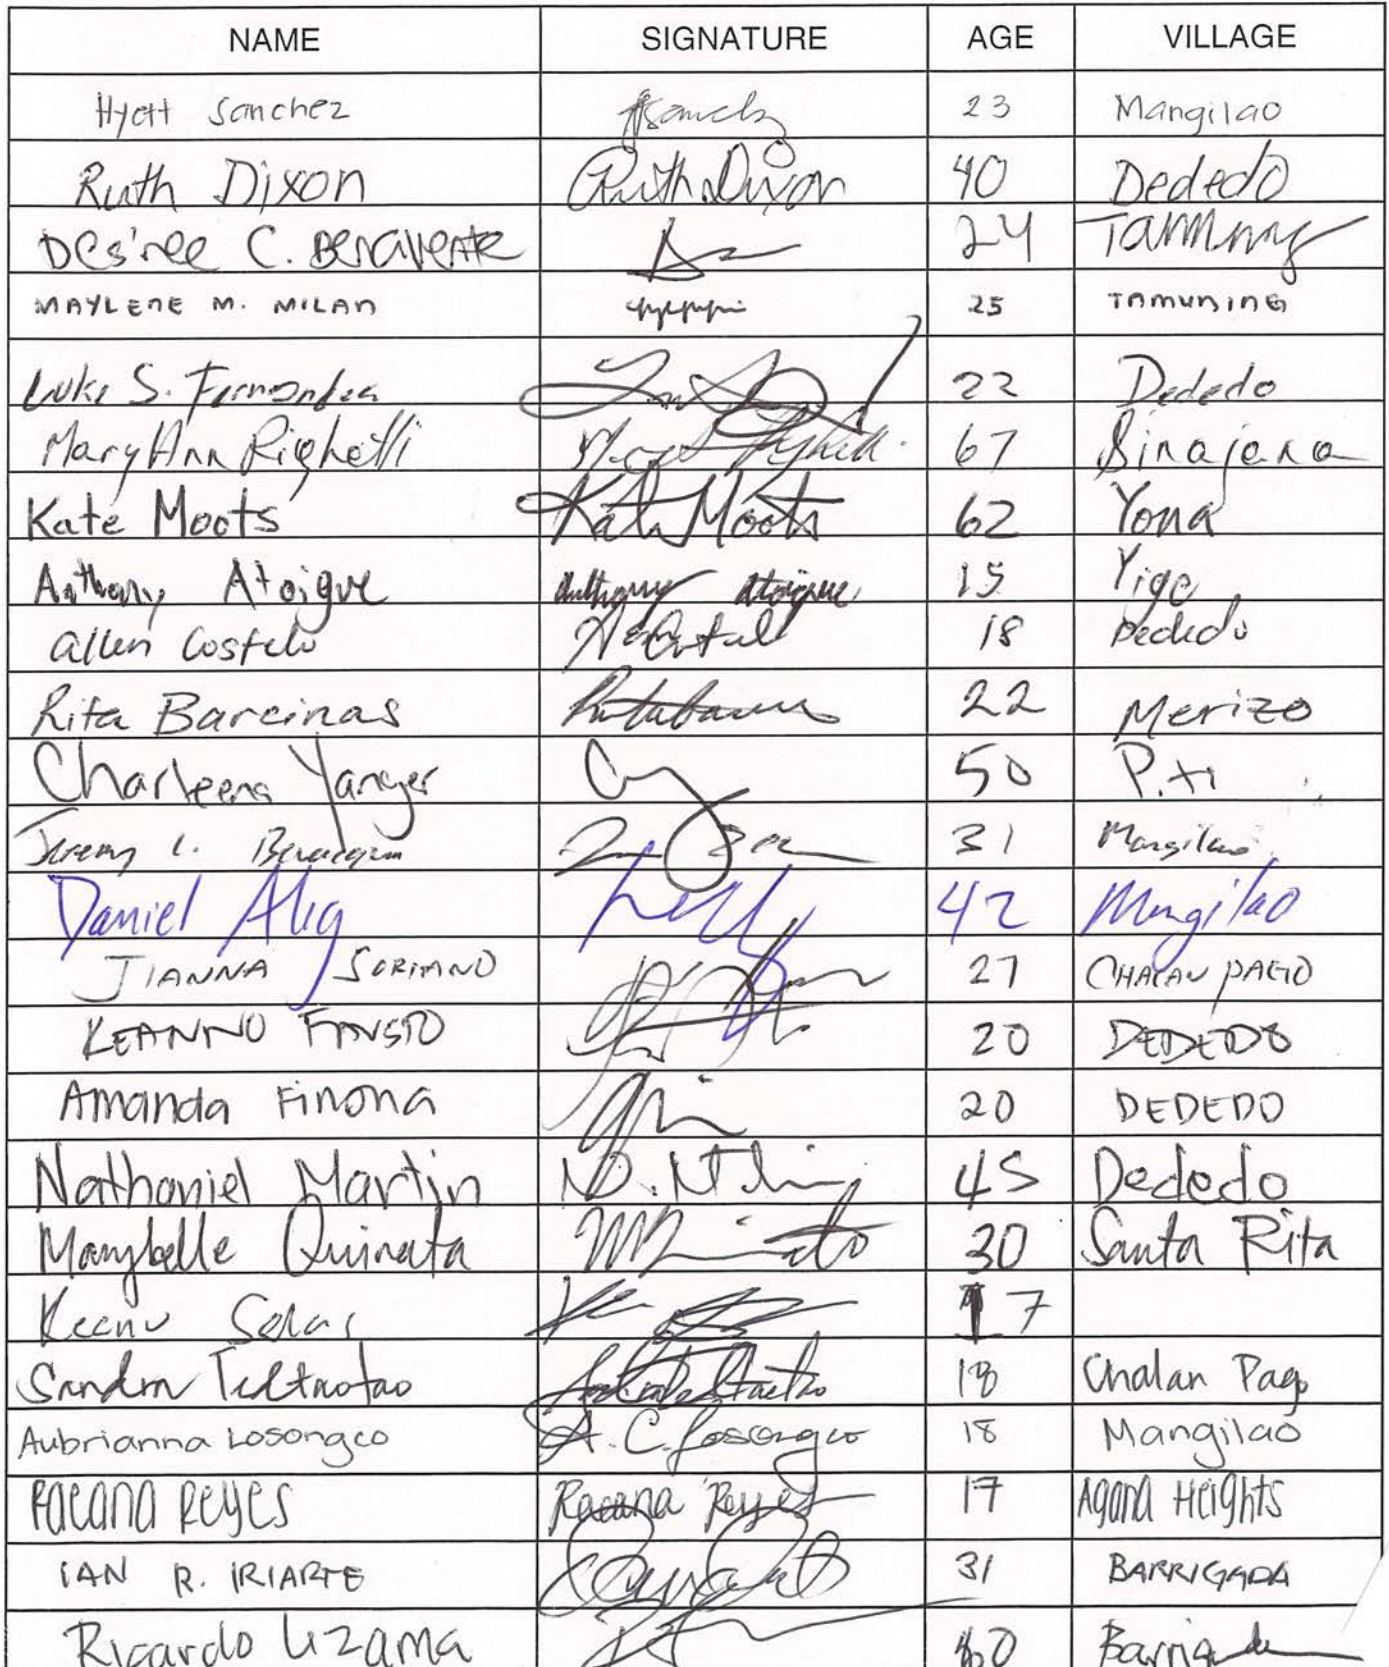 NAME SIGNATURE AGE VILLAGE
Hyatt Sanchez 23 Mangilao
Ruth Dixon Ruth Dixon 40 Dededo
Des'ree C. Benavente 24 Tamuning
MAYLENE M. MILAN 25 TAMUNING
Luke S. Fernandez 22 Dededo
Mary Ann Righetti 67 Sinajana
Kate Moots Kate Moots 62 Yona
Anthony Atoigue Anthony Atoigue 15 Yigo
Allen Costelo 18 Dededo
Rita Barcinas 22 Merizo
Charleena Yanger 50 P.ti
Jeremy 31 Mangilao
Daniel Alig 42 Mangilao
JIANNA SORIANO 27 CHALAN PAGO
KEANNO FAUSTO 20 DEDEDO
Amanda Finona 20 DEDEDO
Nathaniel Martin 45 Dededo
Marybelle Quinata 30 Santa Rita
Keanu Salas 17
Sandra Tedtaotao 18 Chalan Pago
Aubrianna Losongco A. C. Losongco 18 Mangilao
Raeana Reyes Raeana Reyes 17 Agana Heights
IAN R. IRIARTE 31 BARRIGADA
Ricardo Lizama 60 Barrigada